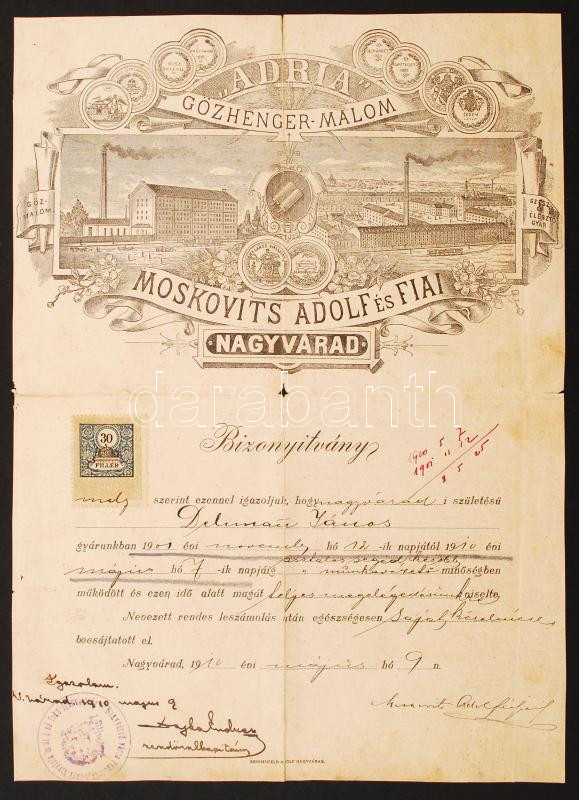 „ADRIA”
GŐZHENGER-MALOM
GŐZ-
MALOM
SZESZ
ÉS
ÉLESZTŐ
GYÁR
MOSKOVITS ADOLF ÉS FIAI
NAGYVÁRAD
darabanth
30
FILLÉR
Bizonyitvány
1910 5 7
1901 11 12
8 5 25
mely szerint ezennel igazoljuk, hogy nagyvárad i születésü
János
gyárunkban 1901 évi november hó 12-ik napjától 1910 évi
asztalos segéd
május hó 7-ik napjáig „ munkavezető minőségben
működött és ezen idő alatt magát teljes megelégedésünkre viselte.
Nevezett rendes leszámolás után egészségesen saját kérelmére
bocsájtatott el.
Nagyvárad, 1910 évi május hó 9 n.
Igazolom.
N.várad, 1910 május 9
rendőralkapitány
SONNENFELD ADOLF NAGYVÁRAD.